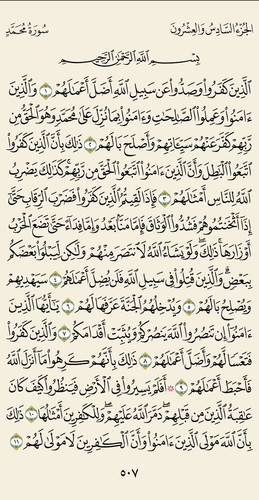 الجُزْءُ السَّادِسُ وَالعِشْرُونَ
سُورَةُ مُحَمَّدٍ
بِسْمِ ٱللَّهِ ٱلرَّحْمَٰنِ ٱلرَّحِيمِ
ٱلَّذِينَ كَفَرُوا۟ وَصَدُّوا۟ عَن سَبِيلِ ٱللَّهِ أَضَلَّ أَعْمَٰلَهُمْ ١ وَٱلَّذِينَ
ءَامَنُوا۟ وَعَمِلُوا۟ ٱلصَّٰلِحَٰتِ وَءَامَنُوا۟ بِمَا نُزِّلَ عَلَىٰ مُحَمَّدٍ وَهُوَ ٱلْحَقُّ مِن
رَّبِّهِمْ كَفَّرَ عَنْهُمْ سَيِّـَٔاتِهِمْ وَأَصْلَحَ بَالَهُمْ ٢ ذَٰلِكَ بِأَنَّ ٱلَّذِينَ كَفَرُوا۟
ٱتَّبَعُوا۟ ٱلْبَٰطِلَ وَأَنَّ ٱلَّذِينَ ءَامَنُوا۟ ٱتَّبَعُوا۟ ٱلْحَقَّ مِن رَّبِّهِمْ كَذَٰلِكَ يَضْرِبُ
ٱللَّهُ لِلنَّاسِ أَمْثَٰلَهُمْ ٣ فَإِذَا لَقِيتُمُ ٱلَّذِينَ كَفَرُوا۟ فَضَرْبَ ٱلرِّقَابِ حَتَّىٰٓ
إِذَآ أَثْخَنتُمُوهُمْ فَشُدُّوا۟ ٱلْوَثَاقَ فَإِمَّا مَنًّۢا بَعْدُ وَإِمَّا فِدَآءً حَتَّىٰ تَضَعَ ٱلْحَرْبُ
أَوْزَارَهَا ۚ ذَٰلِكَ وَلَوْ يَشَآءُ ٱللَّهُ لَٱنتَصَرَ مِنْهُمْ وَلَٰكِن لِّيَبْلُوَا۟ بَعْضَكُم
بِبَعْضٍ ۗ وَٱلَّذِينَ قُتِلُوا۟ فِى سَبِيلِ ٱللَّهِ فَلَن يُضِلَّ أَعْمَٰلَهُمْ ٤ سَيَهْدِيهِمْ
وَيُصْلِحُ بَالَهُمْ ٥ وَيُدْخِلُهُمُ ٱلْجَنَّةَ عَرَّفَهَا لَهُمْ ٦ يَٰٓأَيُّهَا ٱلَّذِينَ
ءَامَنُوٓا۟ إِن تَنصُرُوا۟ ٱللَّهَ يَنصُرْكُمْ وَيُثَبِّتْ أَقْدَامَكُمْ ٧ وَٱلَّذِينَ كَفَرُوا۟
فَتَعْسًا لَّهُمْ وَأَضَلَّ أَعْمَٰلَهُمْ ٨ ذَٰلِكَ بِأَنَّهُمْ كَرِهُوا۟ مَآ أَنزَلَ ٱللَّهُ
فَأَحْبَطَ أَعْمَٰلَهُمْ ٩ ۞ أَفَلَمْ يَسِيرُوا۟ فِى ٱلْأَرْضِ فَيَنظُرُوا۟ كَيْفَ كَانَ
عَٰقِبَةُ ٱلَّذِينَ مِن قَبْلِهِمْ ۚ دَمَّرَ ٱللَّهُ عَلَيْهِمْ ۖ وَلِلْكَٰفِرِينَ أَمْثَٰلُهَا ١٠ ذَٰلِكَ
بِأَنَّ ٱللَّهَ مَوْلَى ٱلَّذِينَ ءَامَنُوا۟ وَأَنَّ ٱلْكَٰفِرِينَ لَا مَوْلَىٰ لَهُمْ ١١
٥٠٧